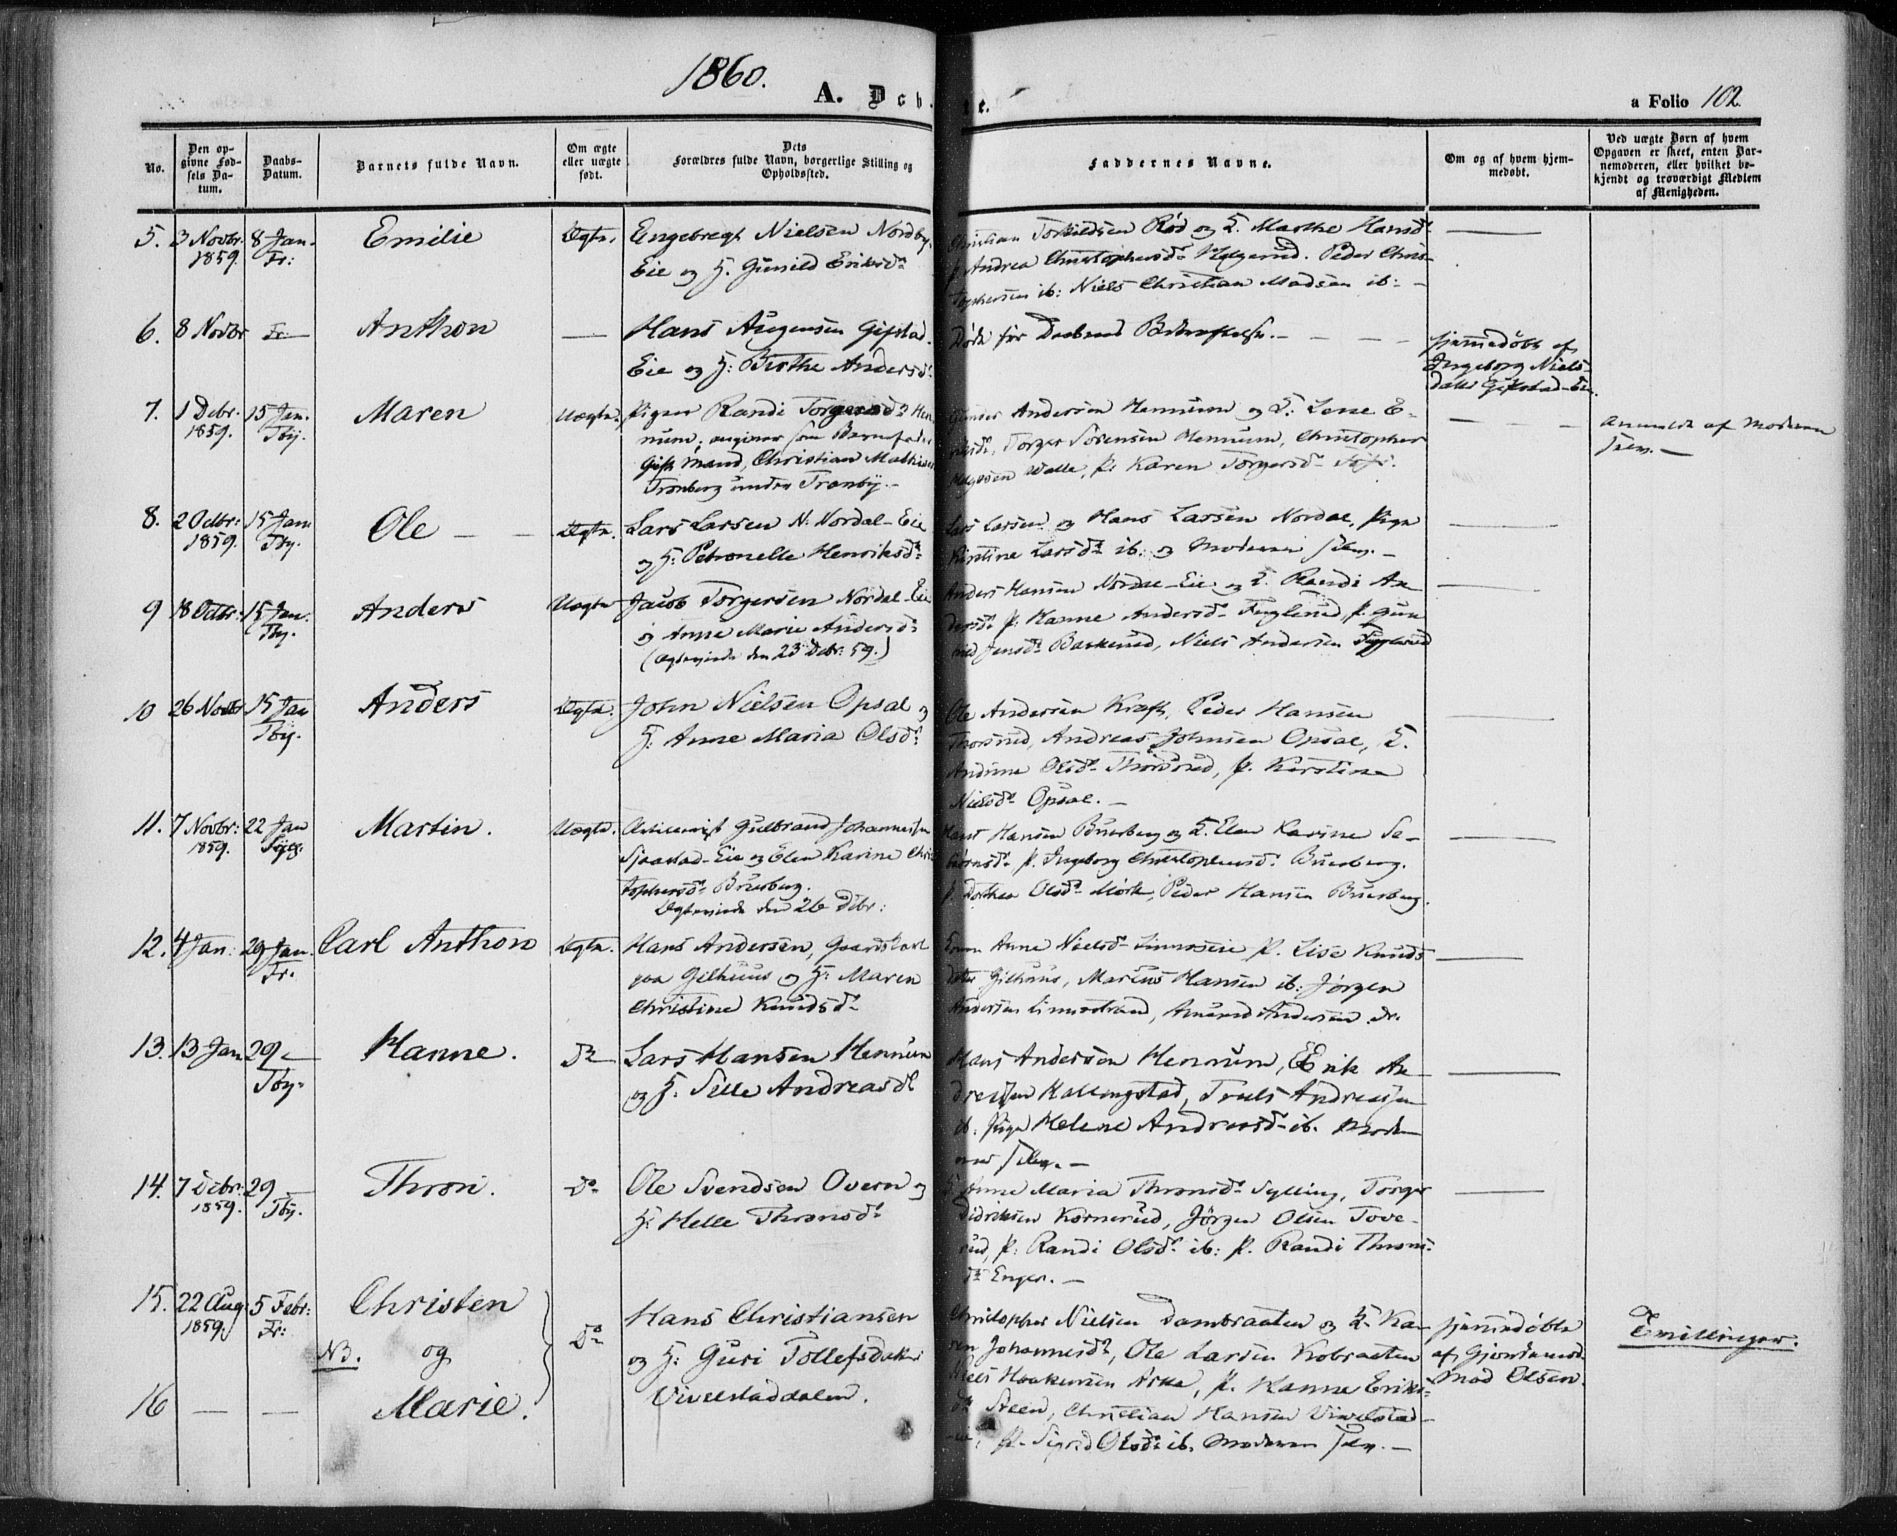 1860.
A. Døb
te.
a Folio 102.
No.
Den opgivne Fødsels Datum.
Daabs-Datum.
Barnets fulde Navn.
Om ægte eller uægte født.
Dets Forældres fulde Navn, borgerlige Stilling og Opholdssted.
Faddernes Navne.
Om og af hvem hjemmedøbt.
Ved uægte Børn af hvem Opgaven er skeet, enten Barnemoderen, eller hvilket bekjendt og troværdigt Medlem af Menigheden.
5. 3 Novbr. 1859. 8 Jan. Fr: Emilie Ægte.
Engebregt Nielsen Nordby
Eie og H. Gunild Eriksd.
Christian Torkildsen Rød og K. Marthe Hansd.
P. Andrea Christophersd. Helgerud. Peder Chris-
tophersen ib: Niels Christian Madsen ib:
6. 8 Novbr Fr. Anthon —
Hans Augensen Gifstad
Eie og H: Berthe Andersd.
Døde før Daabens Bekræftelse. —
hjemmedøbt af
Ingeborg Niels-
datter Gifstad-Eie.
7. 1 Debr. 1859. 15 Jan. Tby. Maren Uægte.
Pigen Randi Torgersd. Hen-
num; angiver som Barnefader
Gift Mand, Christian Mathisen
Tronberg under Tranby. —
Gunner Andersen Hennum og K: Lene E-
riksd. Torger Sørensen Hennum, Christopher
Helgesen Walle, P: Karen Torgersd.
Anmeldt af Moderen
selv. —
8. 2 Octbr: 1859. 15 Jan. Tby. Ole — — Ægte.
Lars Larsen N. Nordal-Eie
og H: Petronelle Henriksd.
Lars Larsen og Hans Larsen Nordal, Pige
Kirstine Larsd. ib: og Moderen selv. —
9 18 Octbr: 15 Jan. Tby. Anders Uægte
Jacob Torgersen Nordal-Eie
og Anne Marie Andersd.
(Ægteviede den 23 Debr: 59.)
Anders Hansen Nordal-Eie og K. Randi An-
dersd. P: Hanne Andersd. Fuglerud, P. Gun
ild Jensd. Bakkerud, Niels Andersen Fuglerud
10 26 Novbr 15 Jan Tby. Anders Ægte.
John Nielsen Opsal og
H: Anne Maria Olsd.
Ole Andersen Kraft, Peder Hansen
Thorsrud, Andreas Johnsen Opsal, K.
Andrine Olsd. Thorsrud, P. Kirstine
Nielsd. Opsal. —
11. 7 Novbr: 1859. 22 Jan Martin. Uægte.
Gulbrand Johannesen
Sjaastad-Eie og Elen Karine Chris
tophersd. Buerberg.
Ægteviede den 26 Debr:
Hans Hansen Buerberg og K. Elen Karine
P. Ingeborg Christophersd. Buerberg.
P. Dorthea Olsd. Mørk, Peder Hansen Buerberg.
12. 4 Jan: 29 Jan. Fr. Carl Anthon Ægte.
Hans Andersen, Gaardskarl
paa Gilhuus og H: Maren
Christine Knudsd.
Anne Nielsd. P. Lise Knuds
datter Gilhuus, Marius Hansen ib: Jørgen
Andersen Linnestrand, Amund Andersen
13. 13 Jan 29 — Tby. Hanne. Do
Lars Hansen Hennum
og H. Sille Andreasd.
Hans Andersen Hennum, Erik An-
dresen Kallengstad, Truls Andreasen
ib. Pige Helene Andreasd. ib. Mode-
ren selv. —
14. 7 Debr: 1859. 29 Tby. Thron. Do
Ole Svendsen Overn og
H: Helle Thronsd.
K. Anne Maria Thronsd. Sylling, Torger
Didriksen Kornerud, Jørgen Olsen Tove-
rud, P: Randi Olsd. ib: P. Randi Throns-
dr. Enger. —
15. 22 Aug. 1859. 5 Febr: Fr: Christen
NB. og
16 — — Marie. Do
Hans Christiansen
og H: Guri Tollefsdatter
Vivelstaddalen.
Christopher Nielsen Dambraaten og K. Ka-
ren Johannesd., Ole Larsen Kobraaten
Niels Haakensen Aske, P. Hanne Eriks-
dr. Steen, Christian Hansen Vivelstad-
eie, P. Sigrid Olsd. ib. Moderen selv. —
hjemmedøbte
af Gjordemod.
Mad Olsen.
Tvillinger.